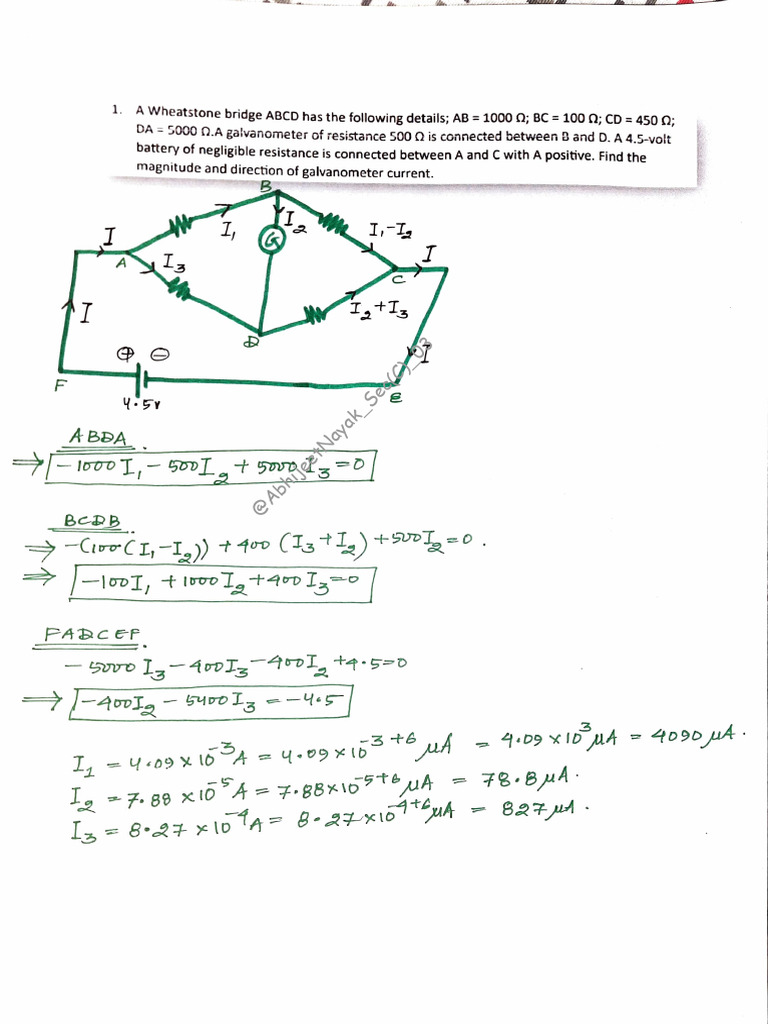 1. A Wheatstone bridge ABCD has the following details; AB = 1000 Ω; BC = 100 Ω; CD = 450 Ω;
DA = 5000 Ω.A galvanometer of resistance 500 Ω is connected between B and D. A 4.5-volt
battery of negligible resistance is connected between A and C with A positive. Find the
magnitude and direction of galvanometer current.
B
I₂
I₁
I₁-I₂
G
I
I
A
I₃
C
I₂+I₃
I
D
I
⊕ ⊖
F
E
4.5V
@AbhijeetNayak_Sec(C)_03
ABDA.
⇒ -1000I₁ - 500I₂ + 5000I₃ = 0
BCDB.
⇒ -(100(I₁-I₂)) + 400 (I₃+I₂) + 500I₂ = 0.
⇒ -100I₁ + 1000I₂ + 400I₃ = 0
FADCEF.
-5000I₃ - 400I₃ - 400I₂ + 4.5 = 0
⇒ -400I₂ - 5400I₃ = -4.5
I₁ = 4.09 × 10⁻³A = 4.09 × 10⁻³⁺⁶ μA = 4.09 × 10³ μA = 4090 μA.
I₂ = 7.88 × 10⁻⁵A = 7.88 × 10⁻⁵⁺⁶ μA = 78.8 μA.
I₃ = 8.27 × 10⁻⁴A = 8.27 × 10⁻⁴⁺⁶ μA = 827 μA.